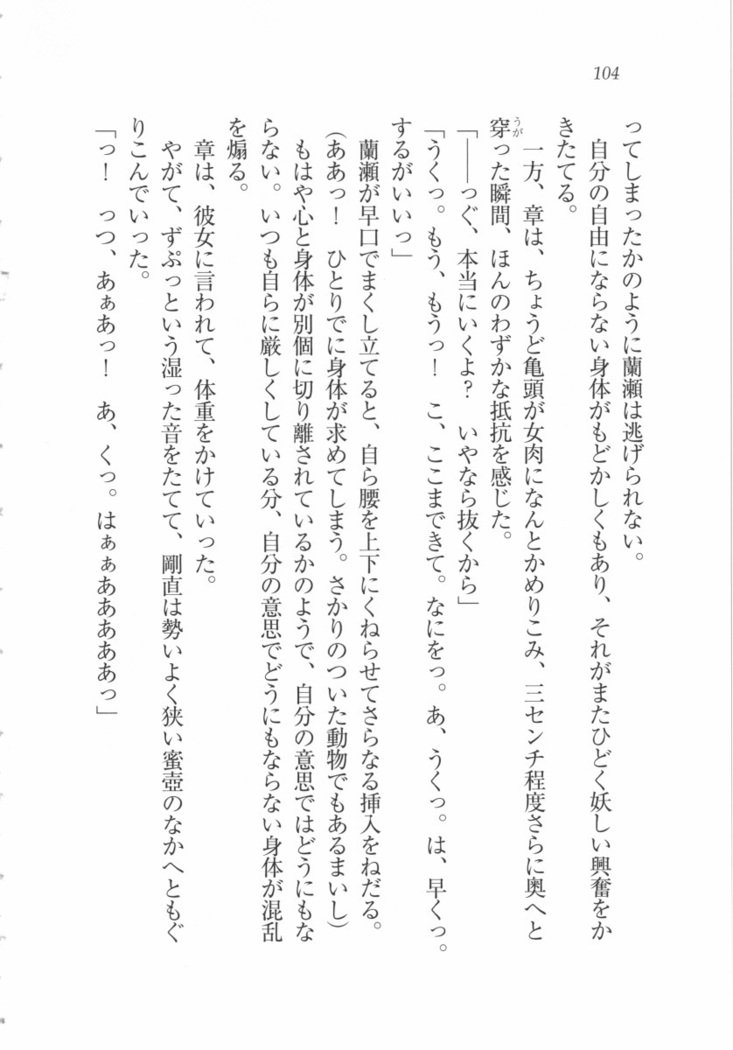 104
ってしまったかのように蘭瀬は逃げられない。
自分の自由にならない身体がもどかしくもあり、それがまたひどく妖しい興奮をか
きたてる。
一方、章は、ちょうど亀頭が女肉になんとかめりこみ、三センチ程度さらに奥へと
穿った瞬間、ほんのわずかな抵抗を感じた。
うが
「――っぐ、本当にいくよ？　いやなら抜くから」
「うくっ。もう、もうっ！　こ、ここまできて。なにをっ。あ、うくっ。は、早くっ。
するがいいっ」
蘭瀬が早口でまくし立てると、自ら腰を上下にくねらせてさらなる挿入をねだる。
（ああっ！　ひとりでに身体が求めてしまう。さかりのついた動物でもあるまいし）
もはや心と身体が別個に切り離されているかのようで、自分の意思ではどうにもな
らない。いつも自らに厳しくしている分、自分の意思でどうにもならない身体が混乱
を煽る。
章は、彼女に言われて、体重をかけていった。
やがて、ずぷっという湿った音をたてて、剛直は勢いよく狭い蜜壺のなかへともぐ
りこんでいった。
「っ！　っつ、あぁあっ！　あ、くっ。はぁぁあああああっ」